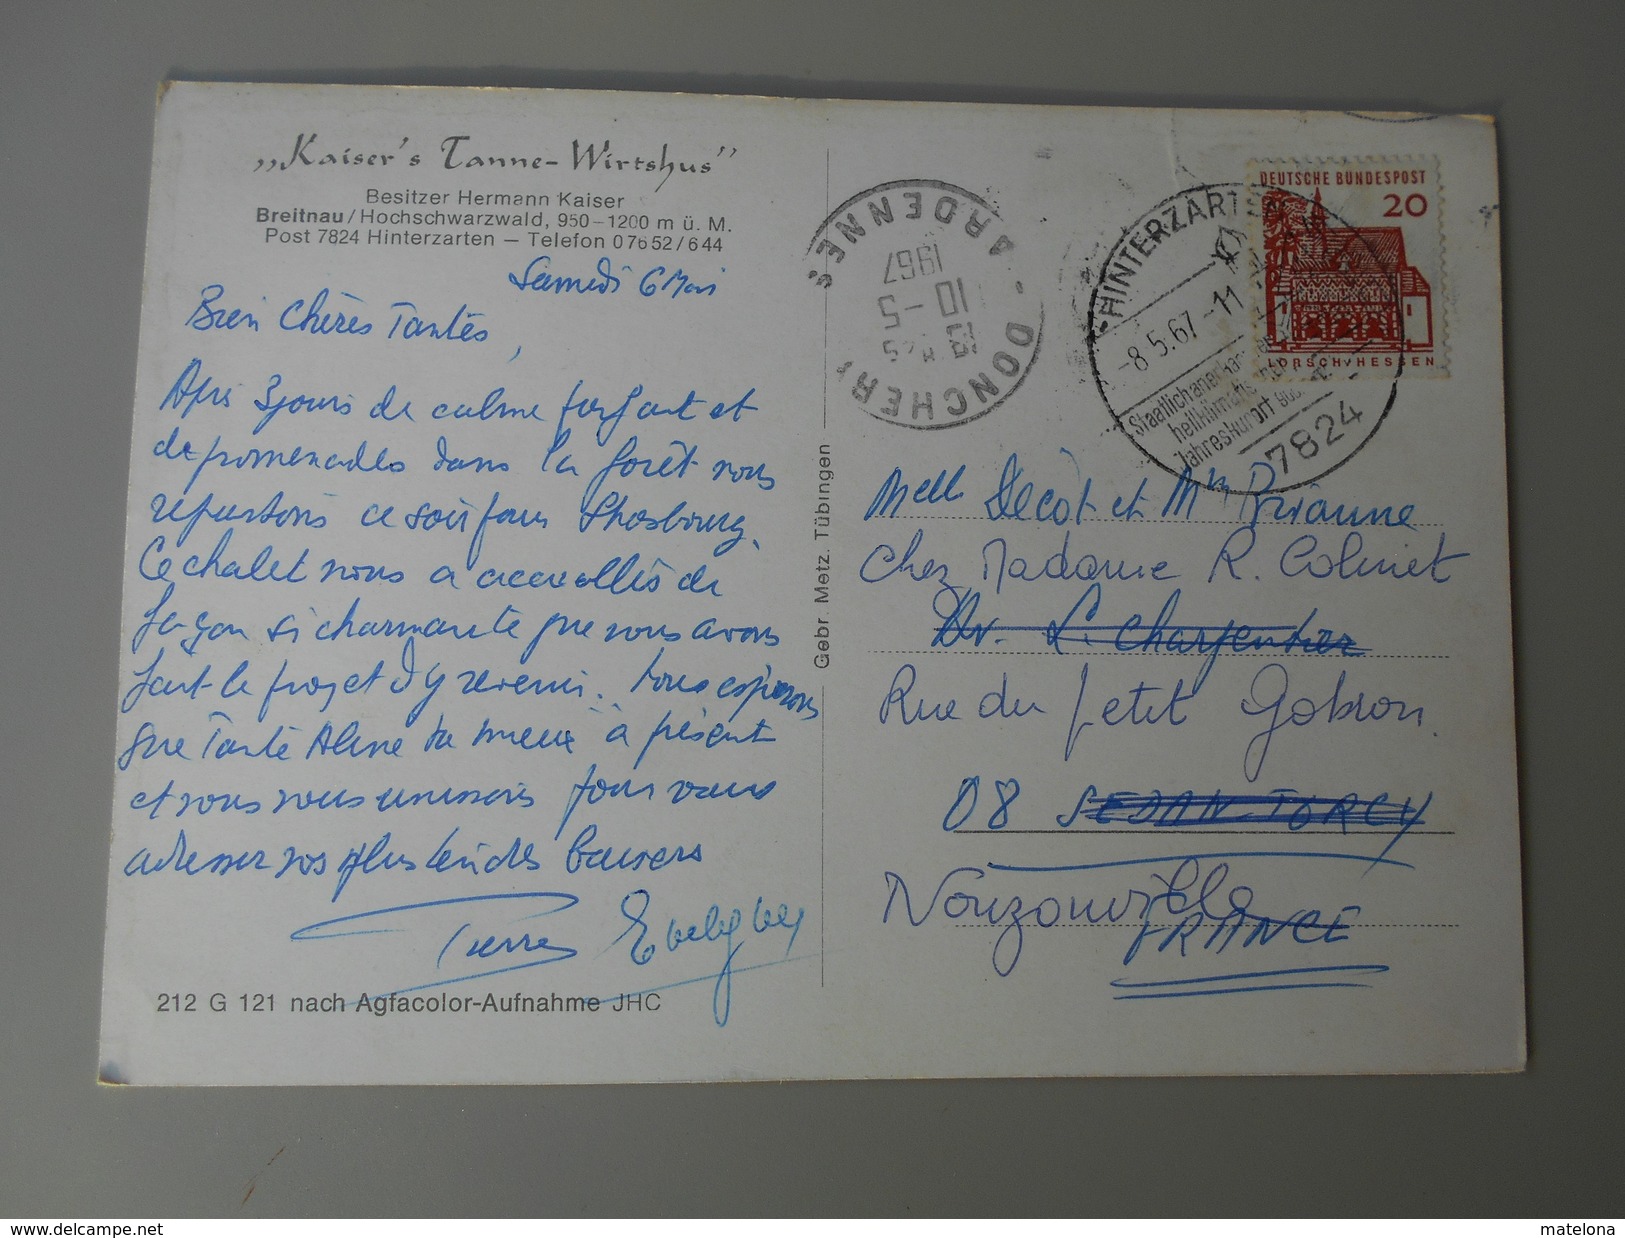 „Kaiser's Tanne-Wirtshus"
Besitzer Hermann Kaiser
Breitnau/Hochschwarzwald, 950–1200 m ü. M.
Post 7824 Hinterzarten – Telefon 07652/644
Samedi 6 Mai
Bien Chères Tantes,
Après 3 jours de calme parfait et
de promenades dans la forêt nous
repartons ce soir pour Strasbourg.
Ce chalet nous a accueillis de
façon si charmante que nous avons
fait le projet d'y revenir. Nous espérons
que Tante Aline va mieux à présent
et nous nous unissons pour vous
adresser nos plus tendres baisers
Pierre
212 G 121 nach Agfacolor-Aufnahme JHC
Gebr. Metz. Tübingen
DONCHERY ARDENNES
10-5
1967
HINTERZARTEN
-8.5.67-11
Staatlich anerkan
heilklimatis
Jahreskurort 900
7824
DEUTSCHE BUNDESPOST
20
LORSCH/HESSEN
Melle Decôt et Mme Brianne
chez Madame R. Colinet
Dr. L. Charpentier
Rue du petit Gobron
08 SEDAN-TORCY
Nouzonville
FRANCE
www.delcampe.net
matelona